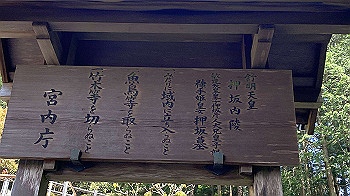 舒明天皇
押坂内陵
糠手姫皇女 押坂墓
一、みだりに域内に立入らぬこと
一、魚鳥等を取らぬこと
一、竹木等を切らぬこと
宮内庁